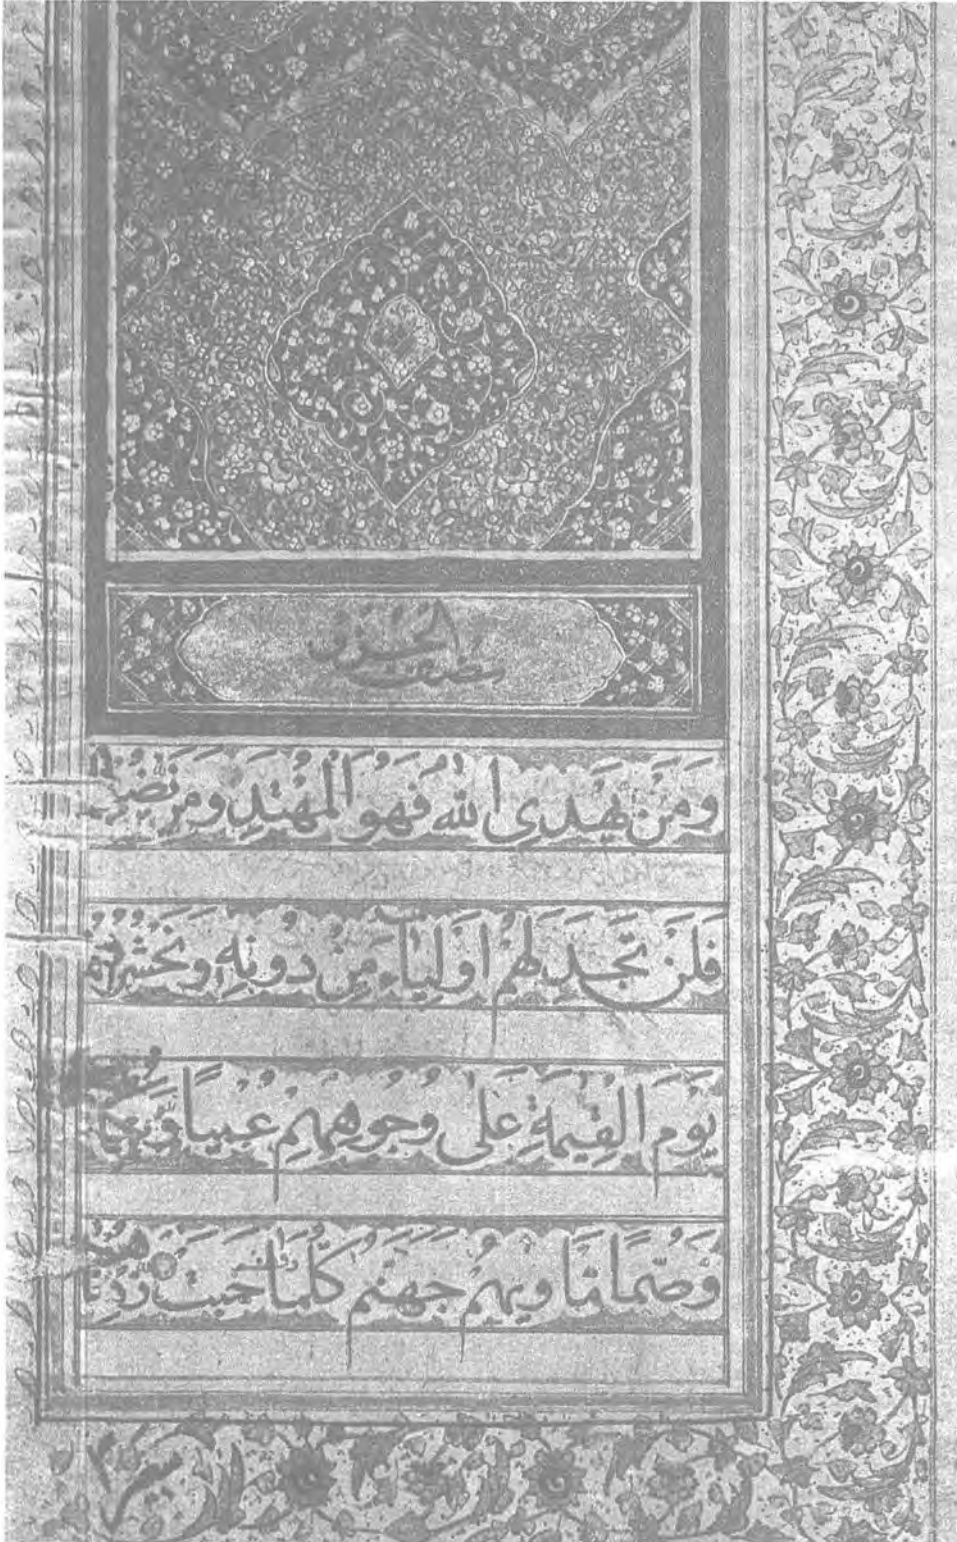 نصف الحزب
وَمَنْ يَهْدِى اللّٰهُ فَهُوَ الْمُهْتَدِ وَمَنْ يُضْلِلْ
فَلَنْ تَجِدَ لَهُمْ اَوْلِيَاۤءَ مِنْ دُونِهِ وَنَحْشُرُهُمْ
يَوْمَ الْقِيٰمَةِ عَلٰى وُجُوهِهِمْ عُمْيًا وَبُكْمًا
وَصُمًّا مَأْوٰيهُمْ جَهَنَّمُ كُلَّمَا خَبَتْ زِدْنَا